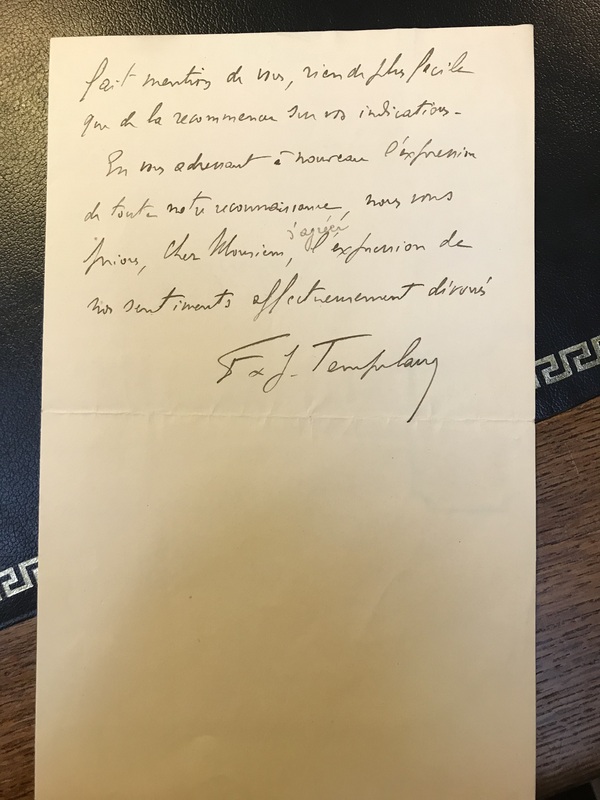 fait mention de vous, rien de plus facile
que de la recommencer sur vos indications.
En vous adressant à nouveau l'expression
de toute notre reconnaissance, nous vous
prions, cher Monsieur, d'agréer l'expression de
nos sentiments affectueusement dévoués
J. Templany